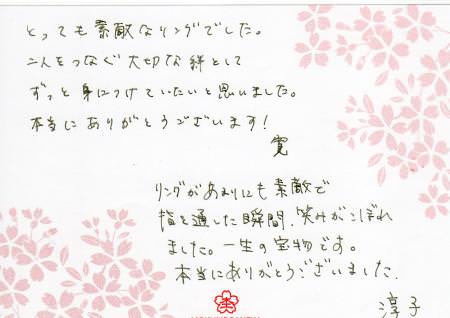 とっても素敵なリングでした。
二人をつなぐ大切な絆として
ずっと身につけていたいと思いました。
本当にありがとうございます!
寛
リングがあまりにも素敵で
指を通した瞬間、笑みがこぼれ
ました。一生の宝物です。
本当にありがとうございました.
淳子